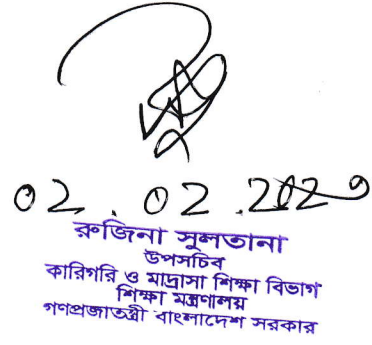 02.02.2020
রুজিনা সুলতানা
উপসচিব
কারিগরি ও মাদ্রাসা শিক্ষা বিভাগ
শিক্ষা মন্ত্রণালয়
গণপ্রজাতন্ত্রী বাংলাদেশ সরকার